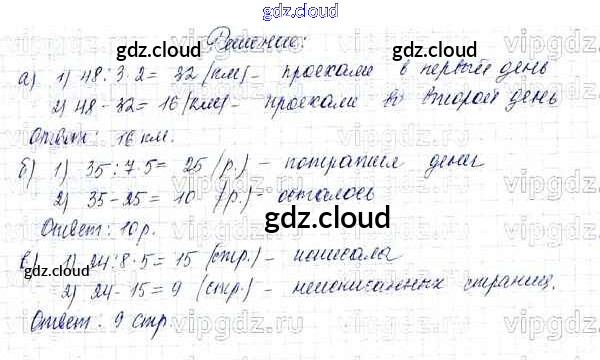 gdz.cloud
Решение:
gdz.cloud
gdz.cloud
а) 1) 48:3·2= 32 (км) - проехали в первый день
2) 48-32= 16 (км) - проехали во второй день
Ответ: 16 км.
б) 1) 35:7·5= 25 (р.) - потратил денег
2) 35-25= 10 (р.) - осталось
gdz.cloud
Ответ: 10 р.
в) 1) 24:8·5= 15 (стр.) - исписала
gdz.cloud
2) 24-15= 9 (стр.) - неисписанных страниц.
Ответ: 9 стр
gdz.cloud